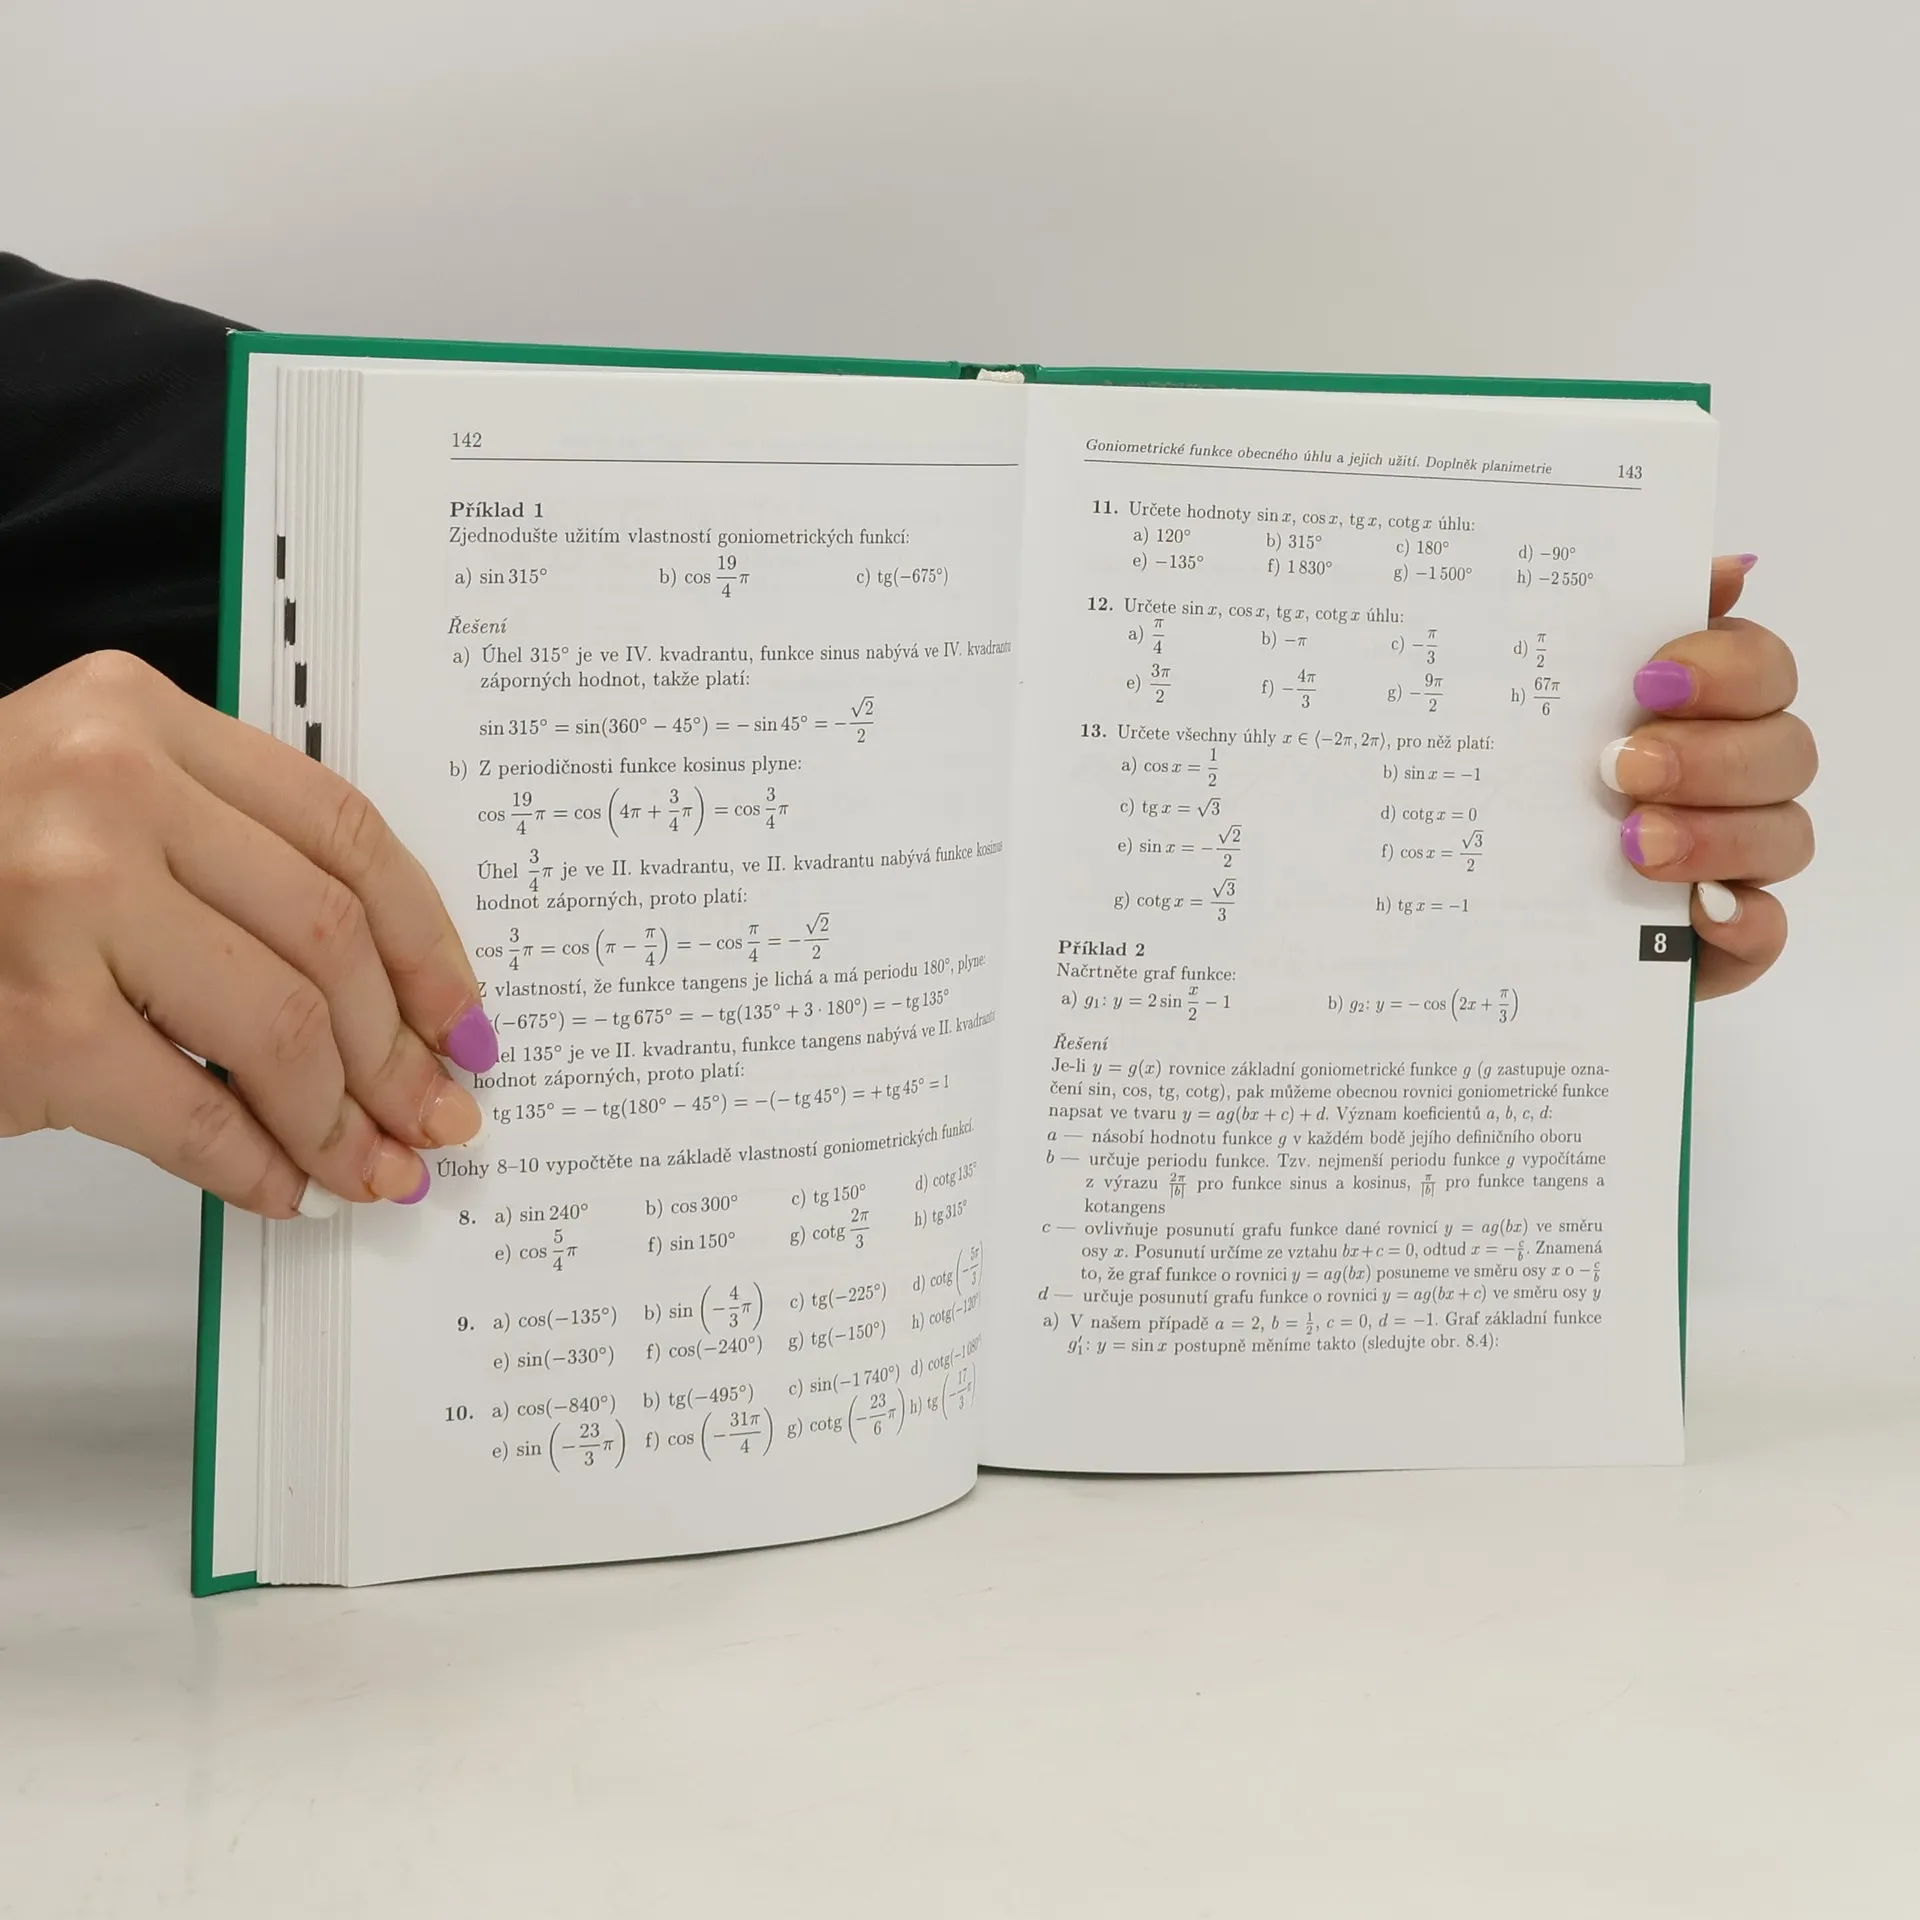 142
Příklad 1
Zjednodušte užitím vlastností goniometrických funkcí:
a) sin 315° b) cos 19/4 π c) tg(−675°)
Řešení
a) Úhel 315° je ve IV. kvadrantu, funkce sinus nabývá ve IV. kvadrantu
záporných hodnot, takže platí:
sin 315° = sin(360° − 45°) = − sin 45° = −√2/2
b) Z periodičnosti funkce kosinus plyne:
cos 19/4 π = cos (4π + 3/4 π) = cos 3/4 π
Úhel 3/4 π je ve II. kvadrantu, ve II. kvadrantu nabývá funkce kosinus
hodnot záporných, proto platí:
cos 3/4 π = cos (π − π/4) = − cos π/4 = −√2/2
Z vlastností, že funkce tangens je lichá a má periodu 180°, plyne:
(−675°) = − tg 675° = − tg(135° + 3 · 180°) = − tg 135°
el 135° je ve II. kvadrantu, funkce tangens nabývá ve II. kvadrantu
hodnot záporných, proto platí:
tg 135° = − tg(180° − 45°) = −(− tg 45°) = + tg 45° = 1
Úlohy 8–10 vypočtěte na základě vlastností goniometrických funkcí.
8. a) sin 240° b) cos 300° c) tg 150° d) cotg 135°
e) cos 5/4 π f) sin 150° g) cotg 2π/3 h) tg 315°
9. a) cos(−135°) b) sin (−4/3 π) c) tg(−225°) d) cotg (−5π/3)
e) sin(−330°) f) cos(−240°) g) tg(−150°) h) cotg(−120°)
10. a) cos(−840°) b) tg(−495°) c) sin(−1 740°) d) cotg(−1 080°)
e) sin (−23/3 π) f) cos (−31π/4) g) cotg (−23/6 π) h) tg (−17/3 π)
Goniometrické funkce obecného úhlu a jejich užití. Doplněk planimetrie 143
11. Určete hodnoty sin x, cos x, tg x, cotg x úhlu:
a) 120° b) 315° c) 180° d) −90°
e) −135° f) 1 830° g) −1 500° h) −2 550°
12. Určete sin x, cos x, tg x, cotg x úhlu:
a) π/4 b) −π c) −π/3 d) π/2
e) 3π/2 f) −4π/3 g) −9π/2 h) 67π/6
13. Určete všechny úhly x ∈ ⟨−2π, 2π⟩, pro něž platí:
a) cos x = 1/2 b) sin x = −1
c) tg x = √3 d) cotg x = 0
e) sin x = −√2/2 f) cos x = √3/2
g) cotg x = √3/3 h) tg x = −1
8
Příklad 2
Načrtněte graf funkce:
a) g₁: y = 2 sin x/2 − 1 b) g₂: y = − cos (2x + π/3)
Řešení
Je-li y = g(x) rovnice základní goniometrické funkce g (g zastupuje ozna-
čení sin, cos, tg, cotg), pak můžeme obecnou rovnici goniometrické funkce
napsat ve tvaru y = ag(bx + c) + d. Význam koeficientů a, b, c, d:
a — násobí hodnotu funkce g v každém bodě jejího definičního oboru
b — určuje periodu funkce. Tzv. nejmenší periodu funkce g vypočítáme
z výrazu 2π/|b| pro funkce sinus a kosinus, π/|b| pro funkce tangens a
kotangens
c — ovlivňuje posunutí grafu funkce dané rovnicí y = ag(bx) ve směru
osy x. Posunutí určíme ze vztahu bx+c = 0, odtud x = −c/b. Znamená
to, že graf funkce o rovnici y = ag(bx) posuneme ve směru osy x o −c/b
d — určuje posunutí grafu funkce o rovnici y = ag(bx + c) ve směru osy y
a) V našem případě a = 2, b = 1/2, c = 0, d = −1. Graf základní funkce
g₁′: y = sin x postupně měníme takto (sledujte obr. 8.4):